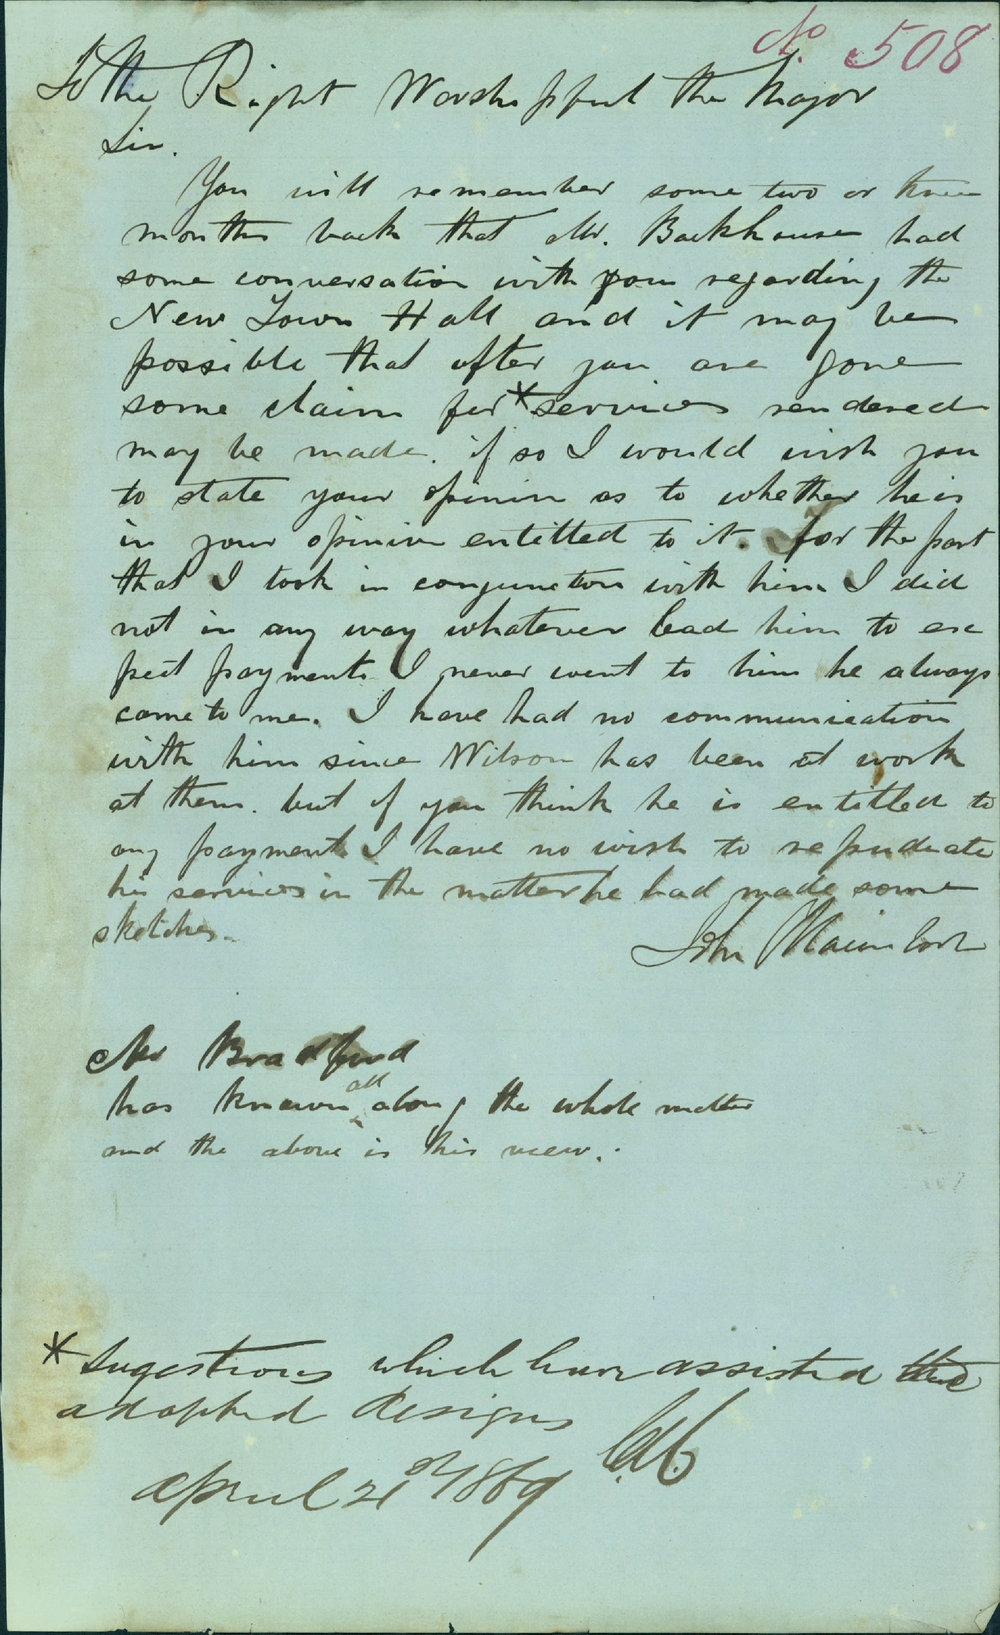 No 508
To the Right Worshipful the Mayor
Sir.
You will remember some two or three
months back that Mr. Backhouse had
some conversation with you regarding the
New Town Hall and it may be
possible that after you are gone
some claim for * services rendered
may be made. if so I would wish you
to state your opinion as to whether he is
in your opinion entitled to it. for the part
that I took in conjuncton with him I did
not in any way whatever lead him to ex
pect payments I never went to him he always
came to me. I have had no communication
with him since Wilson has been at work
at them. but if you think he is entitled to
any payment I have no wish to repudiate
his services in the matter he had made some
sketches.
John
Mr Bradford
has known all along the whole matter
and the above is his view.
* Sugestions which have assisted the
adopted designs
April 21st 1869